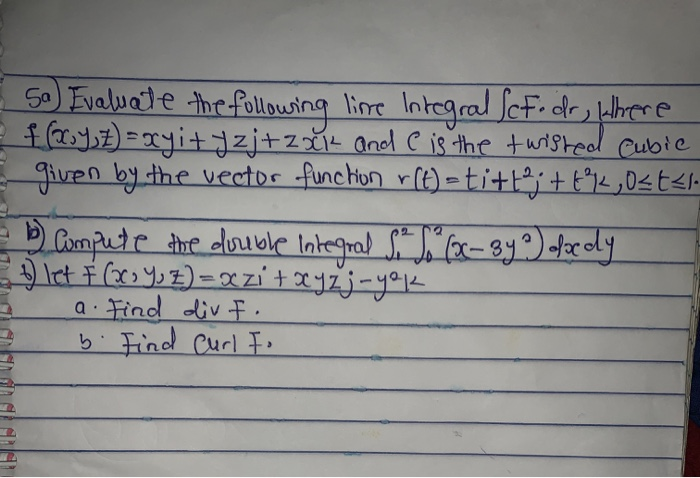 5a) Evaluate the following line Integral ∫cF.dr, Where
f(x,y,z)=xyi+yzj+zxk and C is the twisted cubic
given by the vector function r(t)=ti+t²j+t³k, 0≤t≤1.
b) Compute the double Integral ∫₁²∫₀²(x-3y²)dxdy
t) let F(x,y,z)=xzi+xyzj-y²k
a. Find div F.
b. Find Curl F.